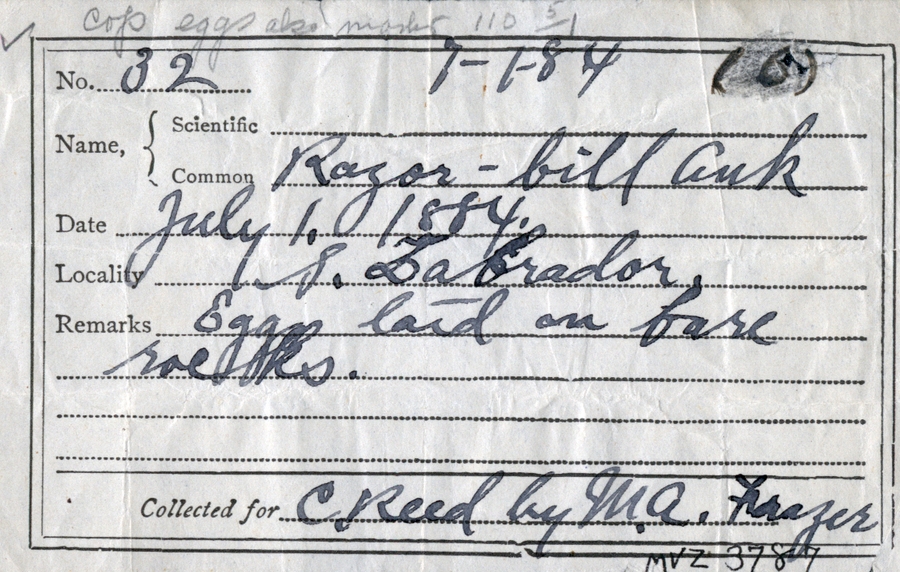 ✓ eggs also 110 5/1
No. 32 7-1-84
Name, { Scientific
Common Razor-bill Auk
Date July 1. 1884.
Locality S. Labrador.
Remarks Eggs laid on bare
rocks.
Collected for C Reed by M.A. Frazer
MVZ 3787